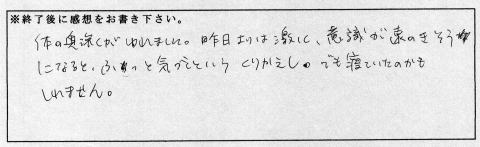 ※終了後に感想をお書き下さい。
体の奥深くがゆれました。昨日よりは激しく、意識が遠のきそう
になると、ふっと気づくという くりかえし。でも寝ていたのかも
しれません。